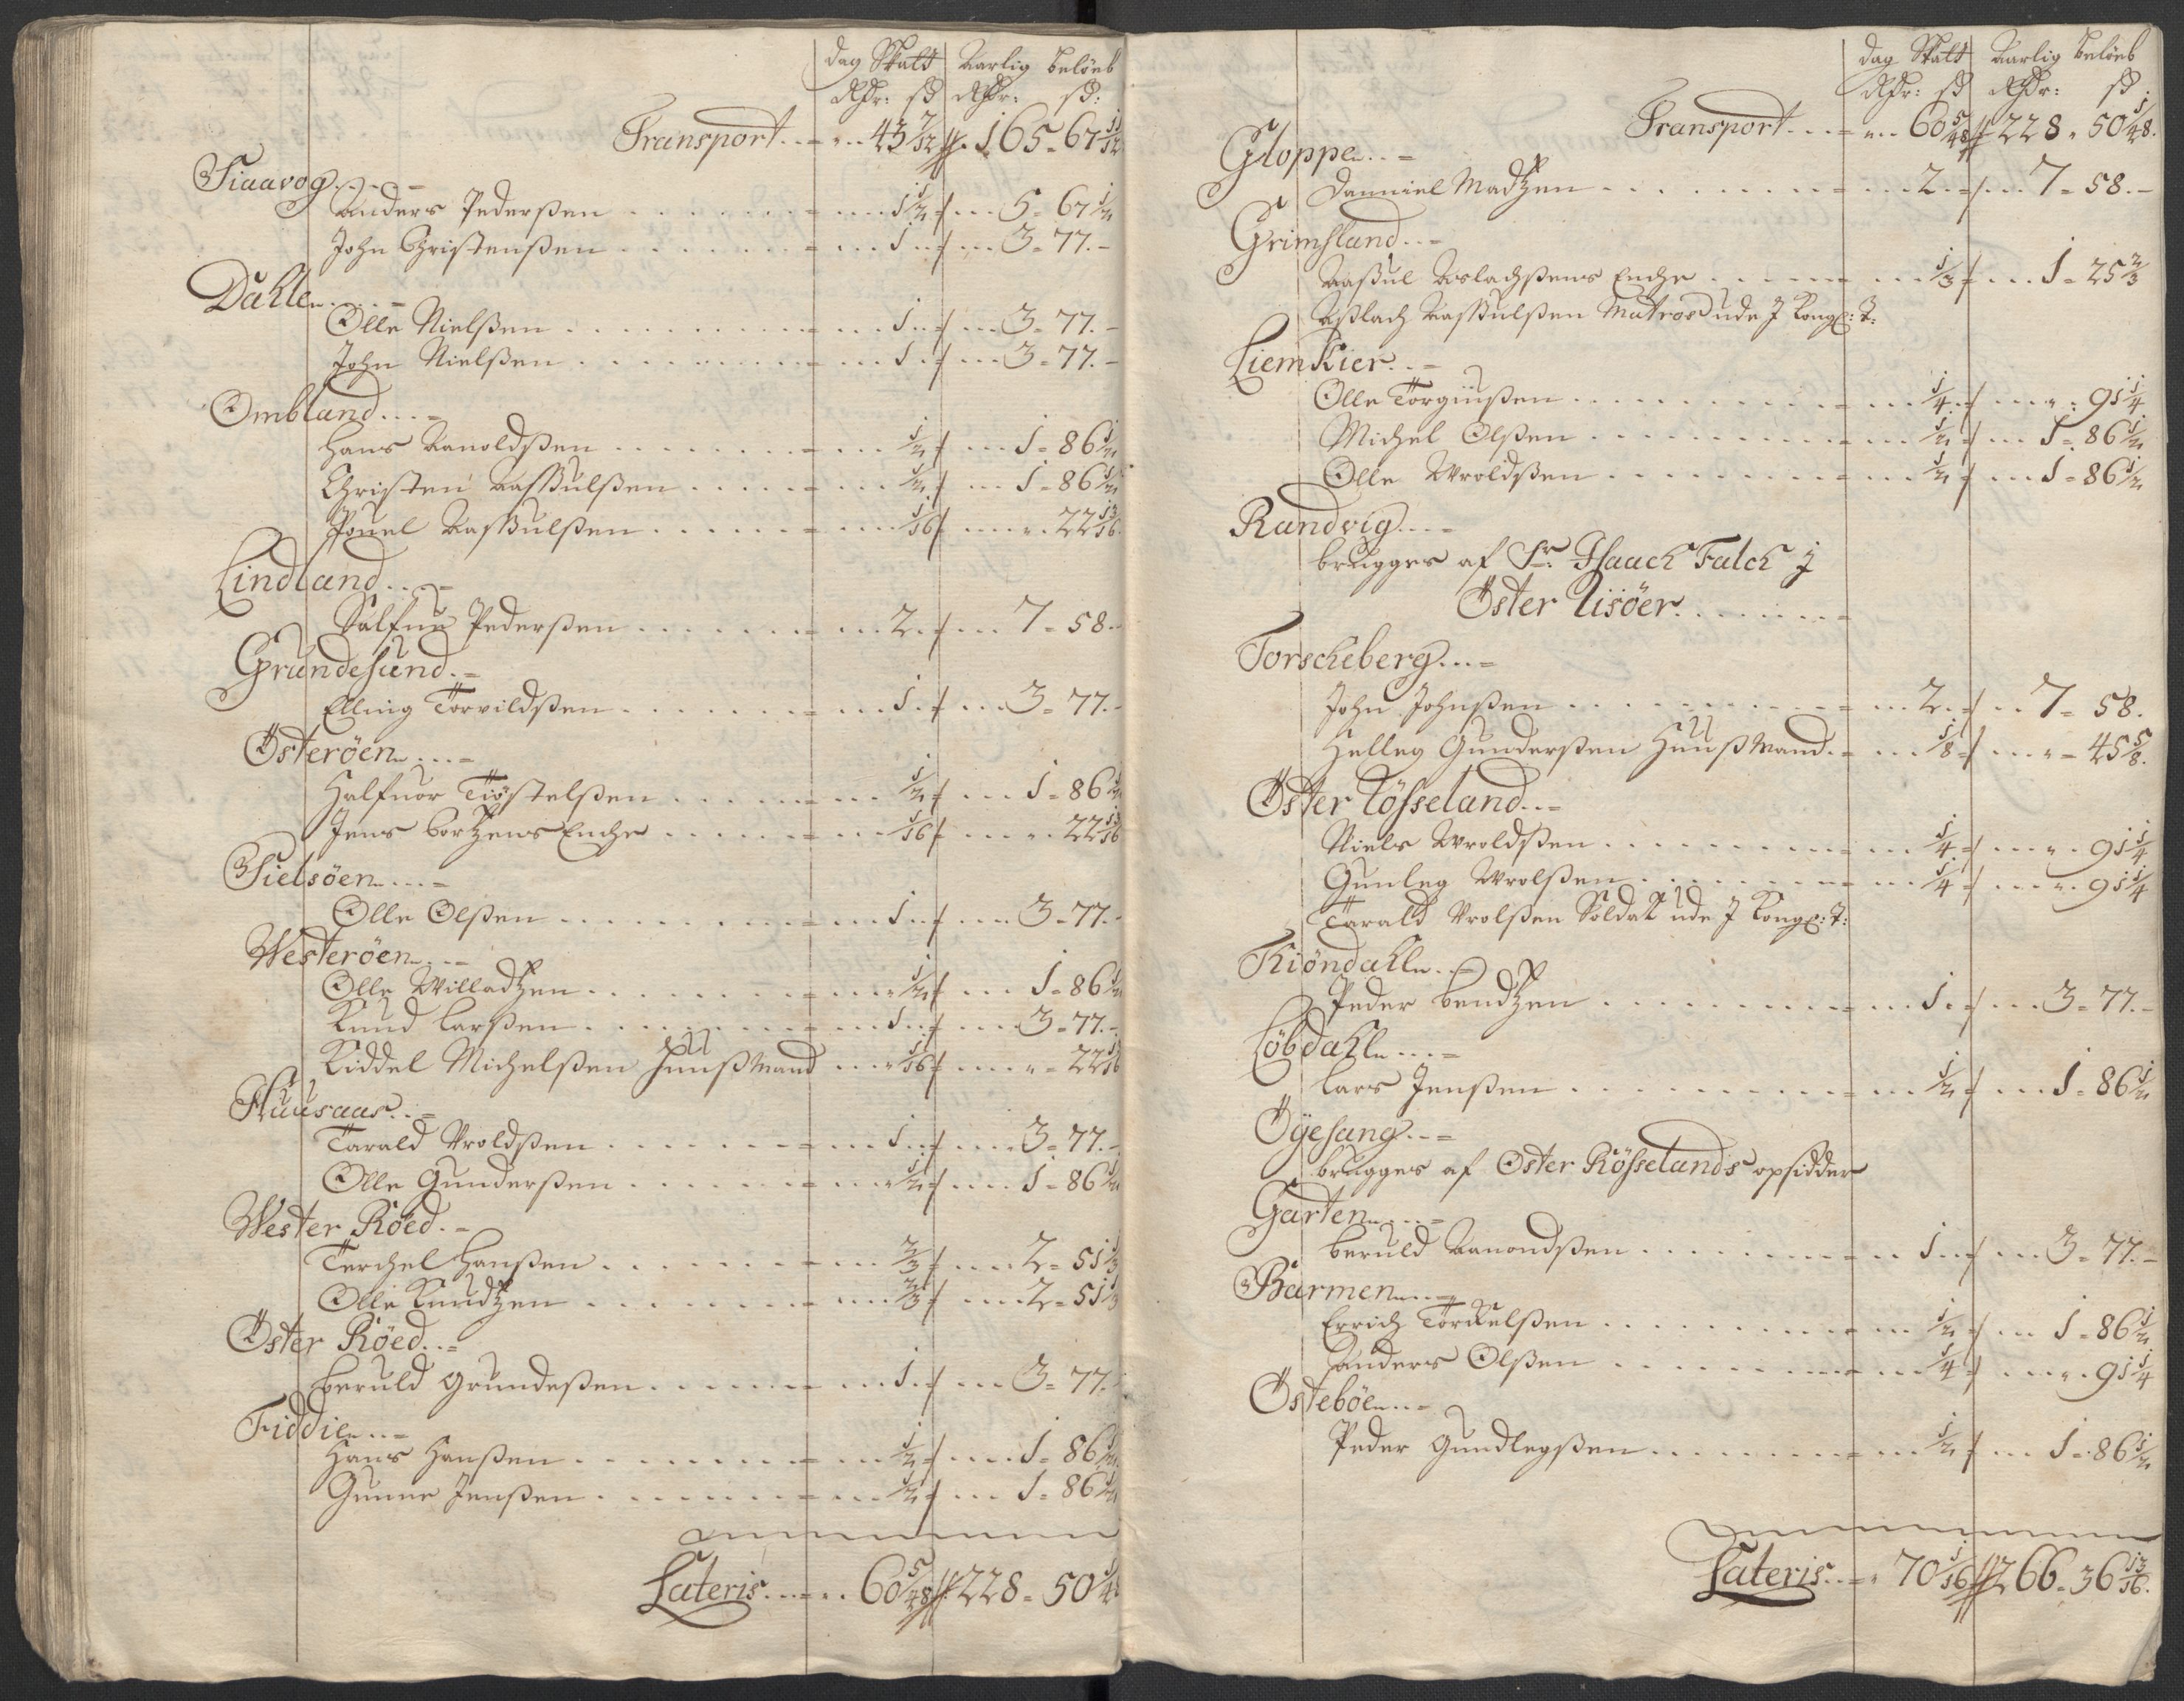 Dag Skatt Aarlig beløeb
Rdr: sd Rdr: sd:
Transport 43 7/12 165 - 67 11/12
Siaavog
Anders Pederßen 1 1/2 5 - 67 1/2
John Christenßen 1 3 - 77
Dahle
Olle Nielßen 1 3 - 77
John Nielßen 1 3 - 77
Ombland
Hans Aanoldßen 1/2 1 - 86 1/2
Christen Aaßulßen 1/2 1 - 86 1/2
Pouel Aaßulßen 1/16 22 13/16
Lindland
Salfue Pederßen 2 7 - 58
Grundesund
Elling Torvildßen 1 3 - 77
Østerøen
Halfuor Tiøstelßen 1/2 1 - 86 1/2
Jens Bortzens Encke 1/16 22 13/16
Sielsøen
Olle Olßen 1 3 - 77
Westerøen
Olle Willadtzen 1/2 1 - 86 1/2
Knud Larßen 1 3 - 77
Kiddel Michelßen Huußmand 1/16 22 13/16
Huusaas
Tarald Vroldßen 1 3 - 77
Olle Gunderßen 1/2 1 - 86 1/2
Wester Røed
Terchel Hanßen 2/3 2 - 51 1/3
Olle Knudtzen 2/3 2 - 51 1/3
Øster Røed
Beruld Grundeßen 1 3 - 77
Fiddie
Hans Hanßen 1/2 1 - 86 1/2
Gunne Jenßen 1/2 1 - 86 1/2
Lateris 60 5/48 228 - 50 1/4
Dag Skatt Aarlig beløeb
Rdr: sd Rdr: sd
Transport 60 5/48 228 - 50 1/48
Gloppe
Danniel Madtzen 2 7 - 58
Grimsland
Aaßul Aslachßens Encke 1/3 1 - 25 2/3
Aßlach Aaßulßen Matros ude J Kongl: T:
Liemkier
Olle Torgiußen 1/4 91 1/4
Michel Olßen 1/2 1 - 86 1/2
Olle Wroldßen 1/2 1 - 86 1/2
Randvig
brugges af Sr. Isaach Falck J
Øster Risøer
Torscheberg
John Johnßen 2 7 - 58
Helleg Gunderßen Huußmand 1/8 45 5/8
Øster Røsseland
Niels Wroldßen 1/4 91 1/4
Gunleg Wrolßen 1/4 91 1/4
Tarald Vrolßen Soldat ude J Kongl: T:
Kiøndahl
Peder Bendtzen 1 3 - 77
Løbdahl
Lars Jenßen 1/2 1 - 86 1/2
Øyesang
brugges af Øster Røsselands opsidder
Garten
Beruld Aanondßen 1 3 - 77
Barmen
Errich Torkelßen 1/2 1 - 86 1/2
Anders Olßen 1/4 91 1/4
Østebøe
Peder Gundlegßen 1/2 1 - 86 1/2
Lateris 70 1/16 266 - 36 13/16